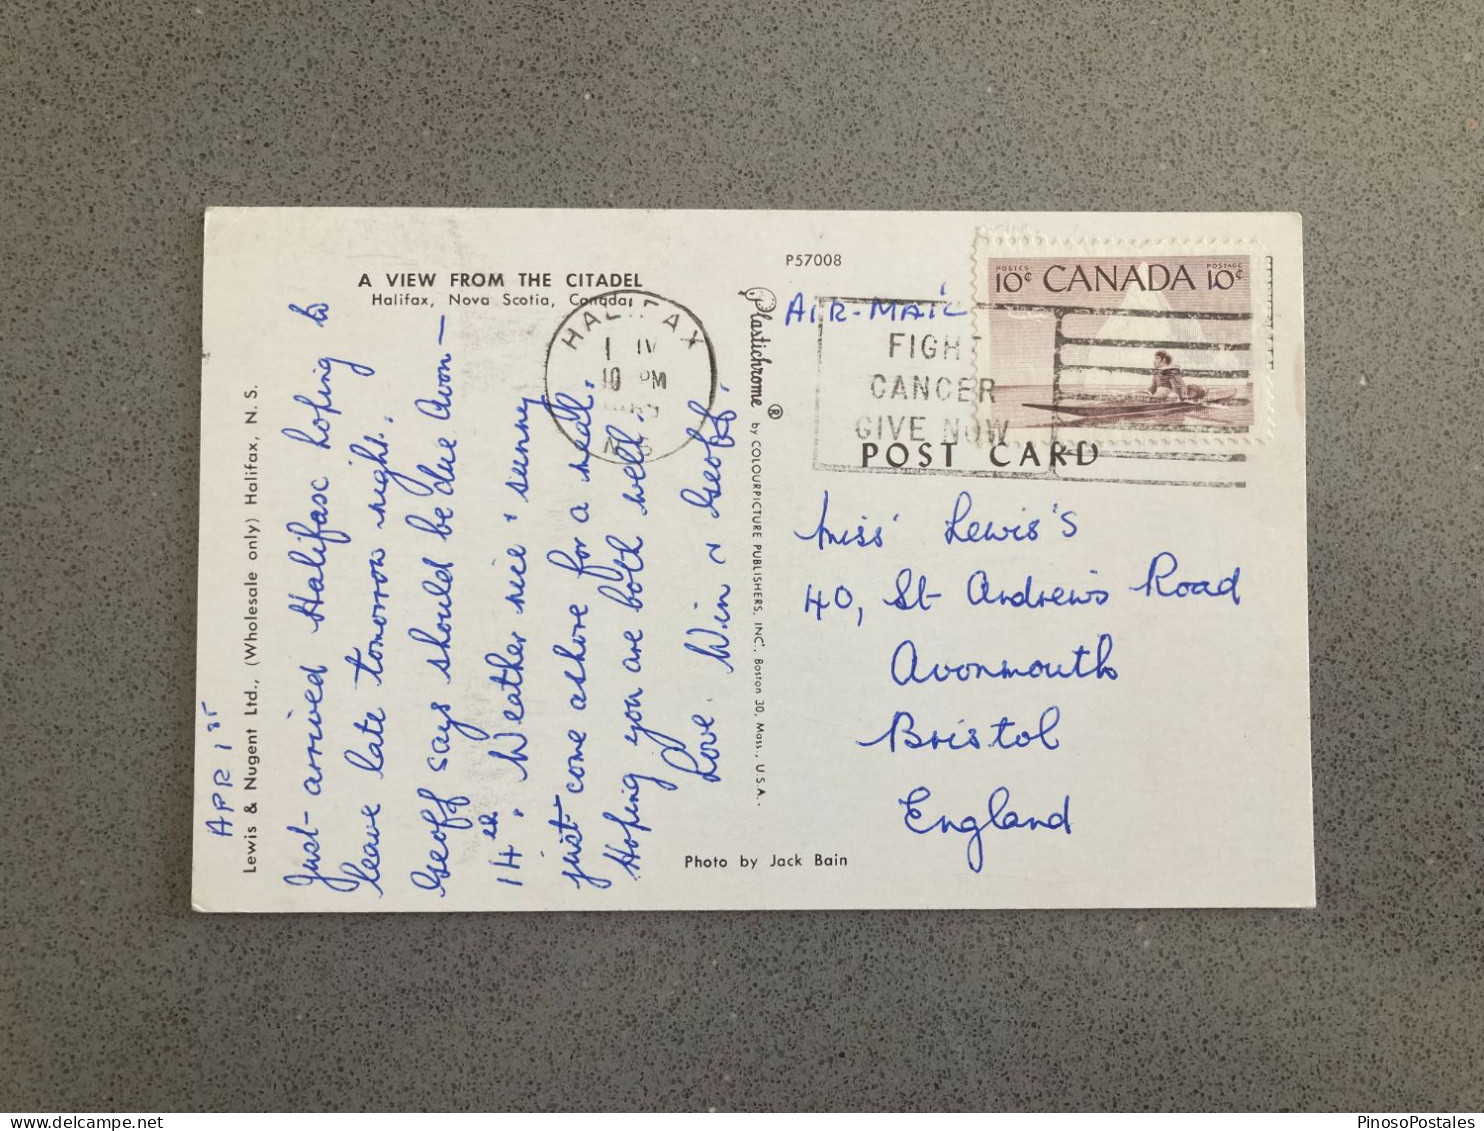 A VIEW FROM THE CITADEL
Halifax, Nova Scotia, Canada
Lewis & Nugent Ltd., (Wholesale only) Halifax, N. S.
APR 1st
Just arrived Halifax hoping to
leave late tomorrow night.
Geoff says should be due Avon—
14th. Weather nice & sunny
just come ashore for a meal.
Hoping you are both well.
Love. Win & Geoff.
Photo by Jack Bain
Plastichrome® by COLOURPICTURE PUBLISHERS, INC., Boston 30, Mass., U.S.A.
P57008
AIR-MAIL
HALIFAX
1 IV
10 PM
N S
FIGHT
CANCER
GIVE NOW
POSTES POSTAGE
10¢ CANADA 10¢
POST CARD
Miss' Lewis's
40, St Andrew's Road
Avonmouth
Bristol
England
delcampe.net
PinosoPostales